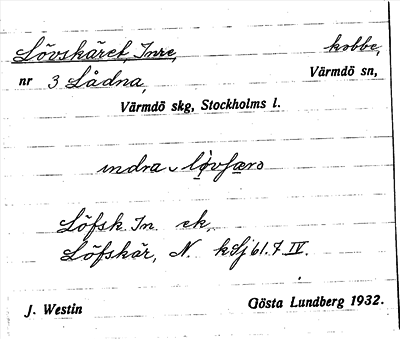 Lövskäret, Inre, kobbe,
nr 3 Lådna, Värmdö sn,
Värmdö skg, Stockholms l.
indra lövfæro
Löfsk. In. ek,
Löfskär, N. kSj 61. 7 IV.
J. Westin Gösta Lundberg 1932.